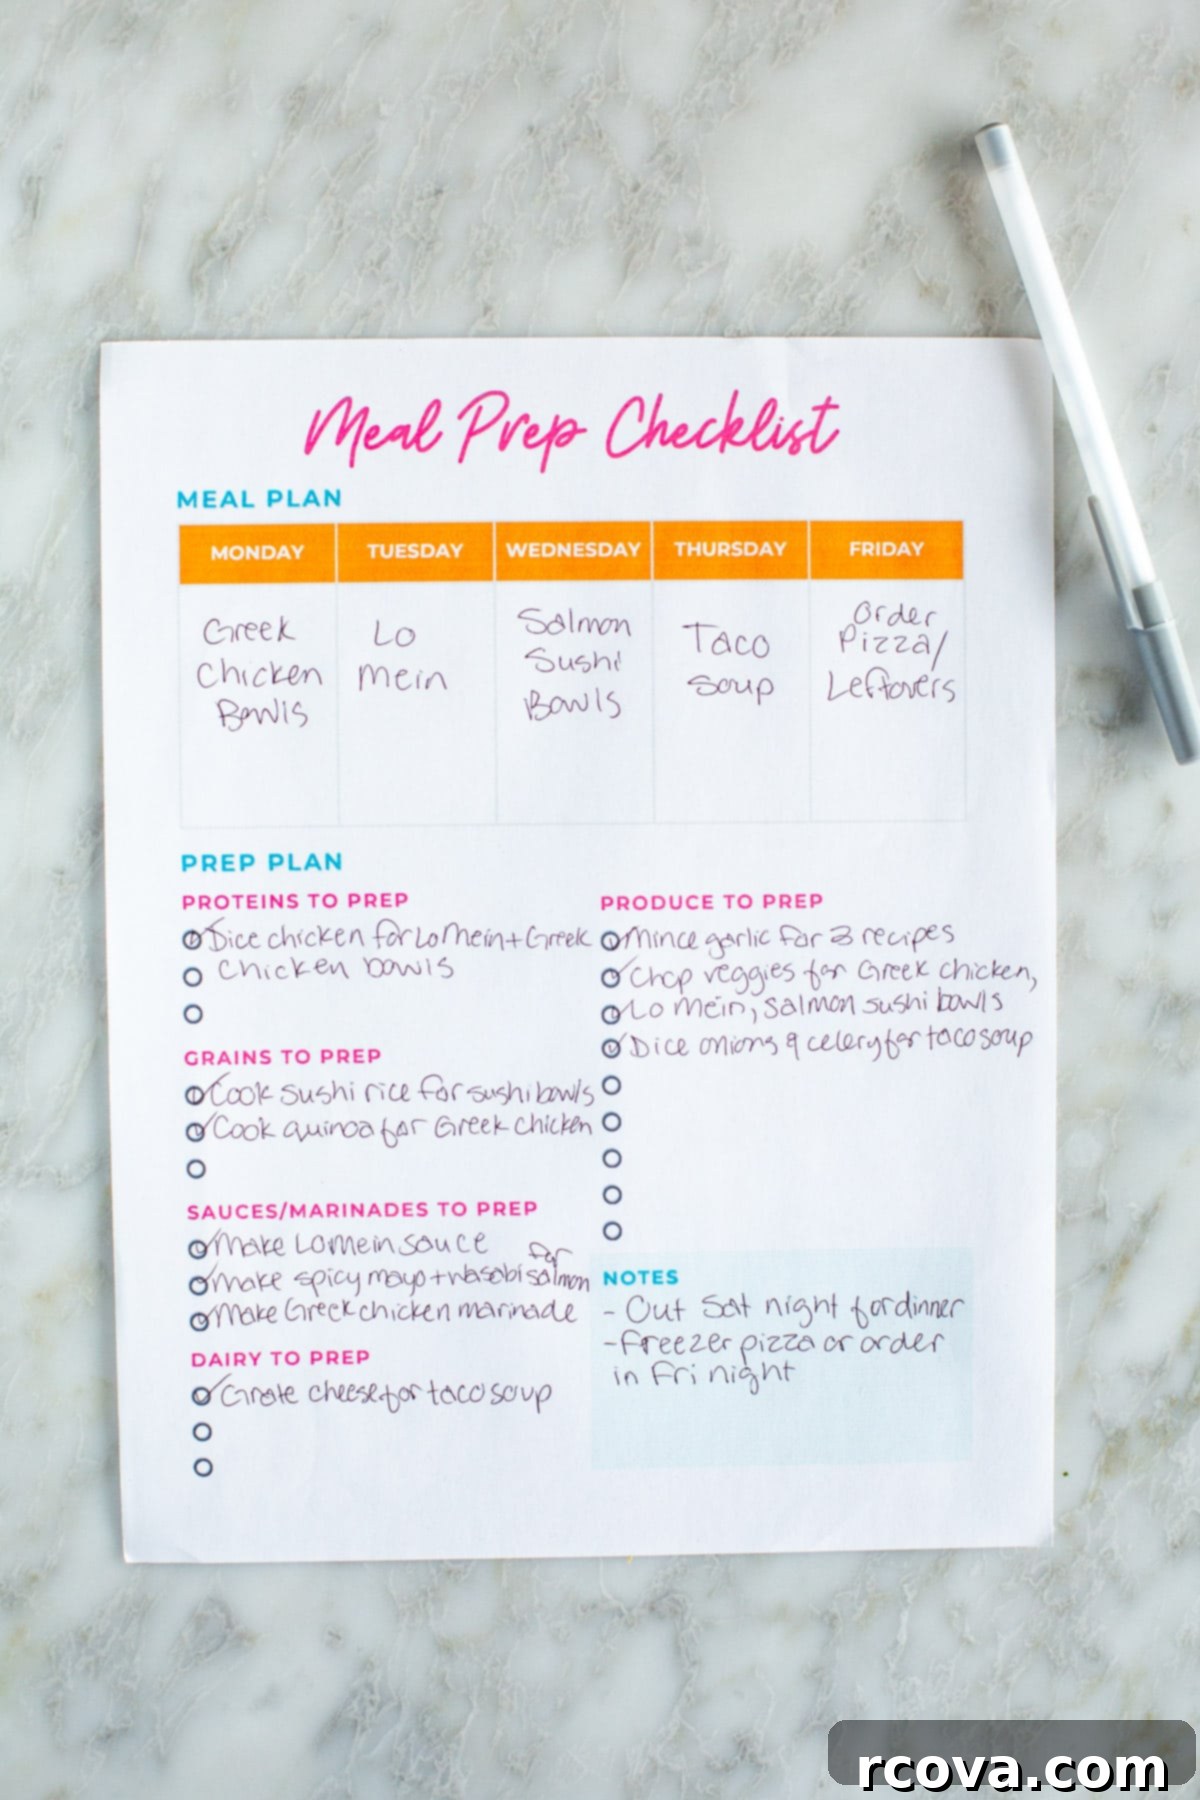 Meal Prep Checklist
MEAL PLAN
MONDAY TUESDAY WEDNESDAY THURSDAY FRIDAY
Greek
Chicken
Bowls
Lo
mein
Salmon
Sushi
Bowls
Taco
Soup
Order
Pizza/
Leftovers
PREP PLAN
PROTEINS TO PREP
Dice chicken for Lo Mein + Greek
Chicken bowls
GRAINS TO PREP
Cook sushi rice for sushi bowls
Cook quinoa for Greek chicken
SAUCES/MARINADES TO PREP
Make Lo mein sauce
make spicy mayo + wasabi for salmon
Make Greek chicken marinade
DAIRY TO PREP
Grate cheese for taco soup
PRODUCE TO PREP
Mince garlic for 3 recipes
Chop veggies for Greek chicken,
Lo mein, salmon sushi bowls
Dice onions & celery for taco soup
NOTES
- Out Sat night for dinner
- Freezer pizza or order
in Fri night
rcova.com